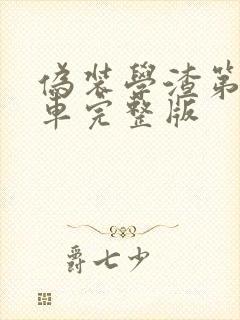 偽裝學渣第
車完整版
爵七少